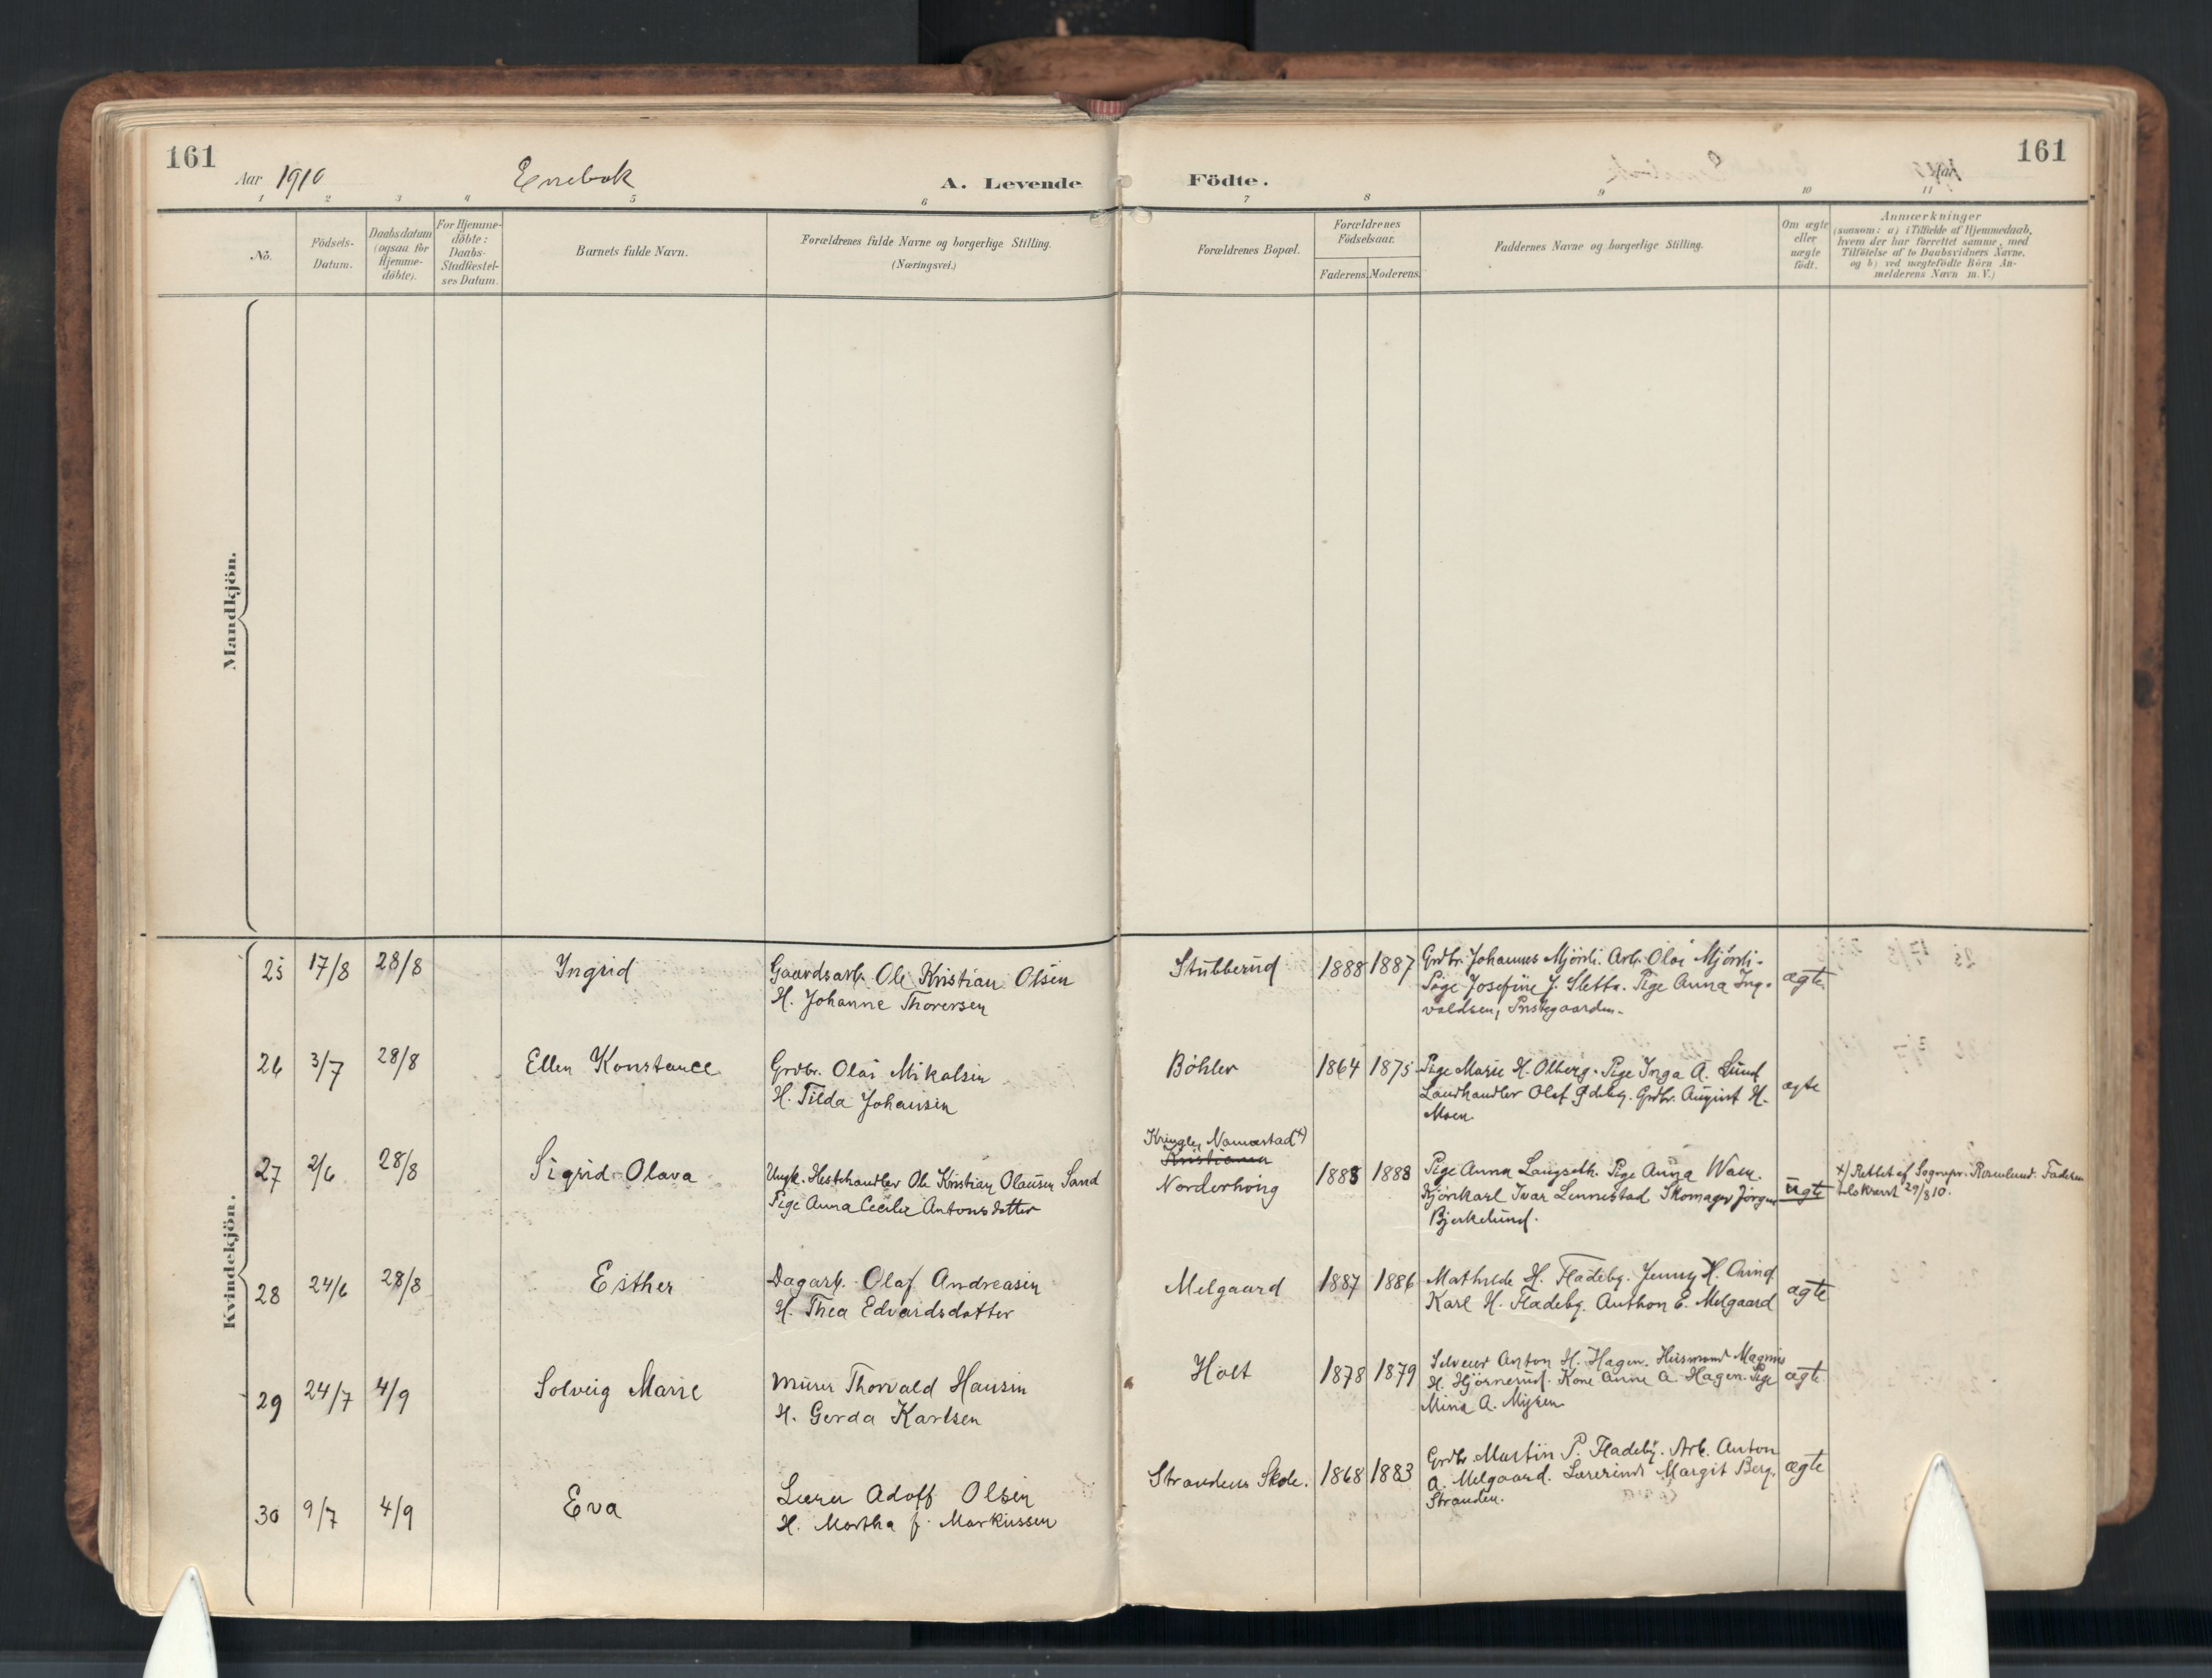 161
Aar 1910
Enebak
A. Levende
Födte.
161
1 2 3 4 5 6 7 8 9 10 11
No.
Födsels-
Datum.
Daabsdatum
(ogsaa for
Hjemme-
döbte).
For Hjemme-
döbte:
Daabs-
Stadfæstel-
ses Datum.
Barnets fulde Navn.
Forældrenes fulde Navne og borgerlige Stilling.
(Næringsvei.)
Forældrenes Bopæl.
Forældrenes
Födselsaar.
Faderens. Moderens.
Faddernes Navne og borgerlige Stilling.
Om ægte
eller
uægte
födt.
Anmærkninger
(saasom: a) i Tilfælde af Hjemmedaab,
hvem der har forrettet samme, med
Tilföielse af to Daabsvidners Navne.
og b) ved uægtefödte Börn An-
melderens Navn m. V.)
Mandkjön.
Kvindekjön.
25 17/8 28/8 Ingrid
Gaardsarb. Ole Kristian Olsen
H. Johanne Thoresen
Stubberud 1888 1887
Grdbr. Johannes Mjörli. Arb. Olai Mjörli.
Pige Josefine J. Sletta. Pige Anna Ing-
valdsen, Prestegaarden.
ægte.
26 3/7 28/8 Ellen Konstance
Grdbr. Olai Mikalsen
H. Tilda Johansen
Böhler 1864 1875
Pige Marie H. Olberg. Pige Inga A. Lund
Landhandler Olaf Gdeby. Grdbr. August H.
Moen
ægte
27 2/6 28/8 Sigrid Olava
Ungk. Hestehandler Ole Kristian Olausen Sand
Pige Anna Cecilie Antonsdatter
Kringler, Nannestad x)
Kristiania
Norderhong 1883 1888
Pige Anna Langseth. Pige Anna Waen.
Kjörekarl Ivar Lennestad Skomager Jörgen
Bjerkelund.
uægte
x) Rettet af Sognepr. Rosenlund. Faderen
29/8 10.
28 24/6 28/8 Esther
Dagarb. Olaf Andreasen
H. Thea Edvardsdatter
Melgaard 1887 1886
Mathilde H. Fladeby. Jenny H.
Karl H. Fladeby. Anthon E. Melgaard
ægte
29 24/7 4/9 Solveig Marie
Murer Thorvald Hansen
H. Gerda Karlsen
Holt 1878 1879
Selveier Anton H. Hagen. Husmand Magnus
H. Hjörnerud. Kone Anne A. Hagen. Pige
Mina A. Mysen
ægte
30 9/7 4/9 Eva
Lærer Adolf Olsen
H. Martha f. Markussen
Strandens Skole. 1868 1883
Grdbr. Martin P. Fladeby. Arb. Anton
A. Melgaard. Lærerinde Margit Berg,
Stranden.
ægte